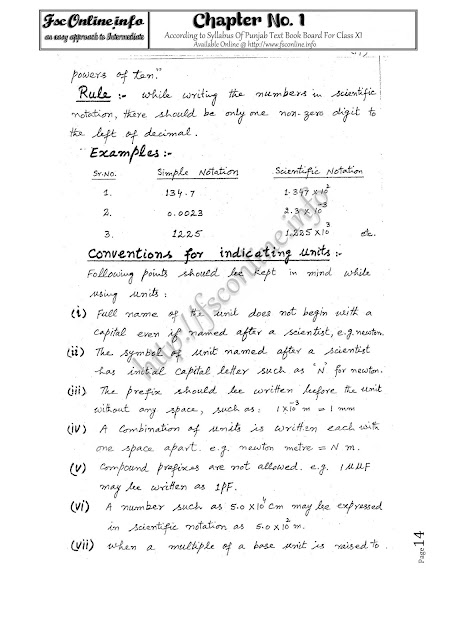 Fsc Online.info
an easy approach to Intermediate
Chapter No. 1
According to Syllabus Of Punjab Text Book Board For Class XI
Available Online @ http://www.fsconline.info
powers of ten."
Rule :- While writing the numbers in scientific
notation, there should be only one non-zero digit to
the left of decimal.
Examples :-
Sr.No. Simple Notation Scientific Notation
1. 134.7 1.347 x 10²
2. 0.0023 2.3 x 10⁻³
3. 1225 1.225 x 10³ etc.
Conventions for indicating units :-
Following points should be kept in mind while
using units :
(i) Full name of the unit does not begin with a
capital even if named after a scientist, e.g. newton.
(ii) The symbol of unit named after a scientist
has initial capital letter such as "N" for newton.
(iii) The prefix should be written before the unit
without any space, such as : 1 x 10⁻³ m = 1 mm
(iv) A combination of units is written each with
one space apart. e.g. newton metre = N m.
(v) Compound prefixes are not allowed. e.g. 1μμF
may be written as 1pF.
(vi) A number such as 5.0 x 10⁴ cm may be expressed
in scientific notation as 5.0 x 10² m.
(vii) When a multiple of a base unit is raised to
Page 14
http://fsconline.info